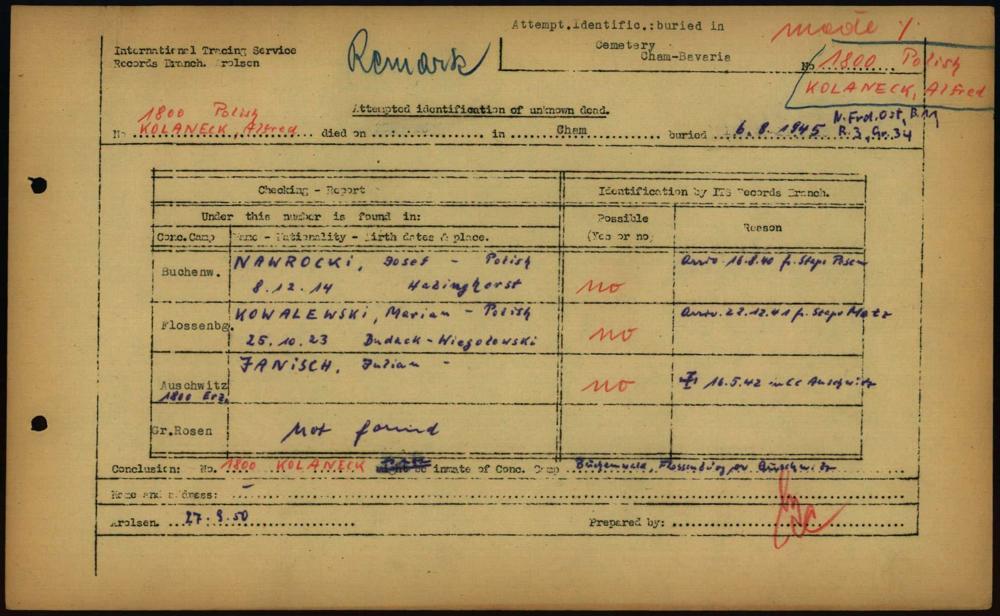 Attempt.Identific.:buried in
Cemetery
Cham-Bavaria
made
No 1800 Polish
KOLANECK, Alfred
International Tracing Service
Records Branch. Arolsen
Remark
Attempted identification of unknown dead.
1800 Polish
No KOLANECK, Alfred died on in Cham buried 6.8.1945 N.Frd.Ost, B.11
R.3, Gr.34
Checking - Report
Identification by ITS Records Branch.
Under this number is found in:
Possible
(Yes or no)
Reason
Conc.Camp Name - Nationality - Birth dates & place.
Buchenw. NAWROCKI, Josef - Polish no Arriv. 16.8.40 f. Stapo Posen
8.12.14 Hazinghorst
Flossenbg. KOWALEWSKI, Marian - Polish no Arriv. 22.12.41 f. Stapo Metz
25.10.23
Auschwitz JANISCH, Julian - no 16.5.42 in CC Auschwitz
1800 Erz.
Gr.Rosen Not found
Conclusion: No. 1800 KOLANECK inmate of Conc. Camp Buchenwald, Flossenbürg or Auschwitz
Home and address: -
Arolsen. 27.9.50 Prepared by: